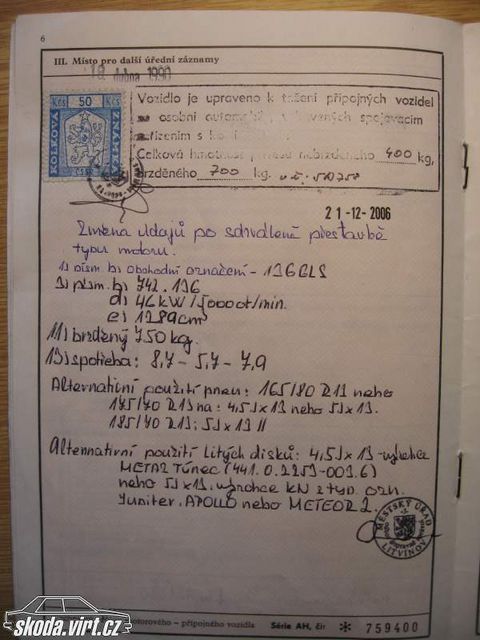 6
III. Místo pro další úřední záznamy
18. dubna 1990
Kčs 50 Kčs
KOLKOVÁ
ZNÁMKA
Vozidlo je upraveno k tažení přípojných vozidel
za osobní automobil
zařízením s
Celková hmotnost nebrzděného 400 kg,
brzděného 700 kg.
21-12-2006
Změna údajů po schválené přestavbě
typu motoru.
obchodní označení - 136 GLS
b) 742.136
d) 46 kW/5000 ot/min.
e) 1289 cm³
11) brzděný 750 kg.
spotřeba: 8,7 - 5,7 - 7,9
Alternativní použití pneu: 165/80 R13 nebo
175/70 R13 na: 4,5J x 13 nebo 5J x 13.
185/70 R13; 5J x 13 H
Alternativní použití litých disků: 4,5J x 13 - výrobce
METAZ Týnec (441.0.2253-003.6)
nebo 5J x 13 výrobce KN z typ. ozn.
Jupiter, APOLLO nebo METEOR 2.
MĚSTSKÝ ÚŘAD
LITVÍNOV
motorového - přípojného vozidla Série AH, čís. * 759400
skoda.virt.cz